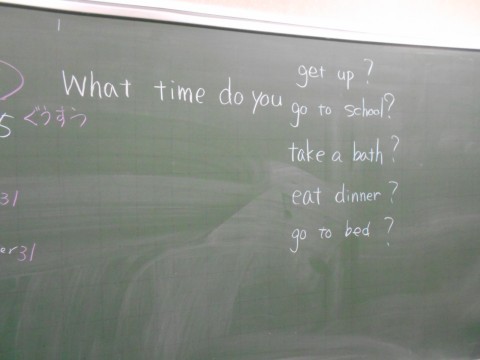 What time do you
get up?
go to school?
take a bath?
eat dinner?
go to bed?
5 ぐうすう
31
er31